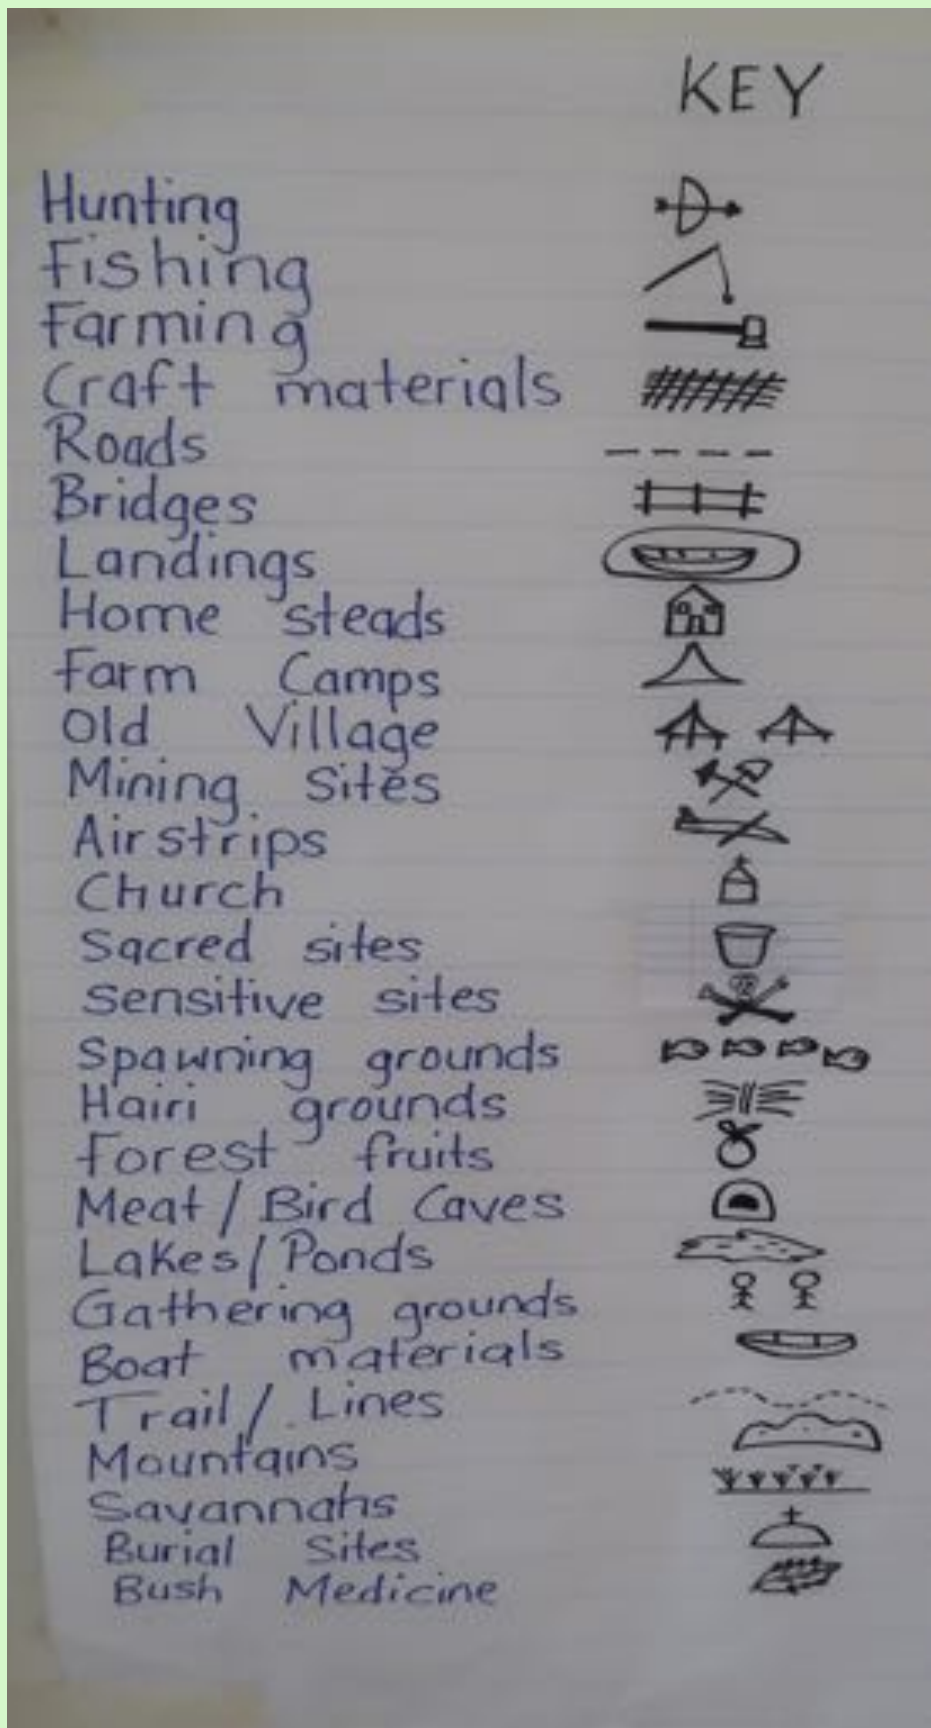 KEY
Hunting
Fishing
Farming
Craft materials
Roads
Bridges
Landings
Home steads
Farm Camps
Old Village
Mining Sites
Airstrips
Church
Sacred sites
Sensitive sites
Spawning grounds
Hairi grounds
Forest fruits
Meat/Bird Caves
Lakes/Ponds
Gathering grounds
Boat materials
Trail/Lines
Mountains
Savannahs
Burial Sites
Bush Medicine